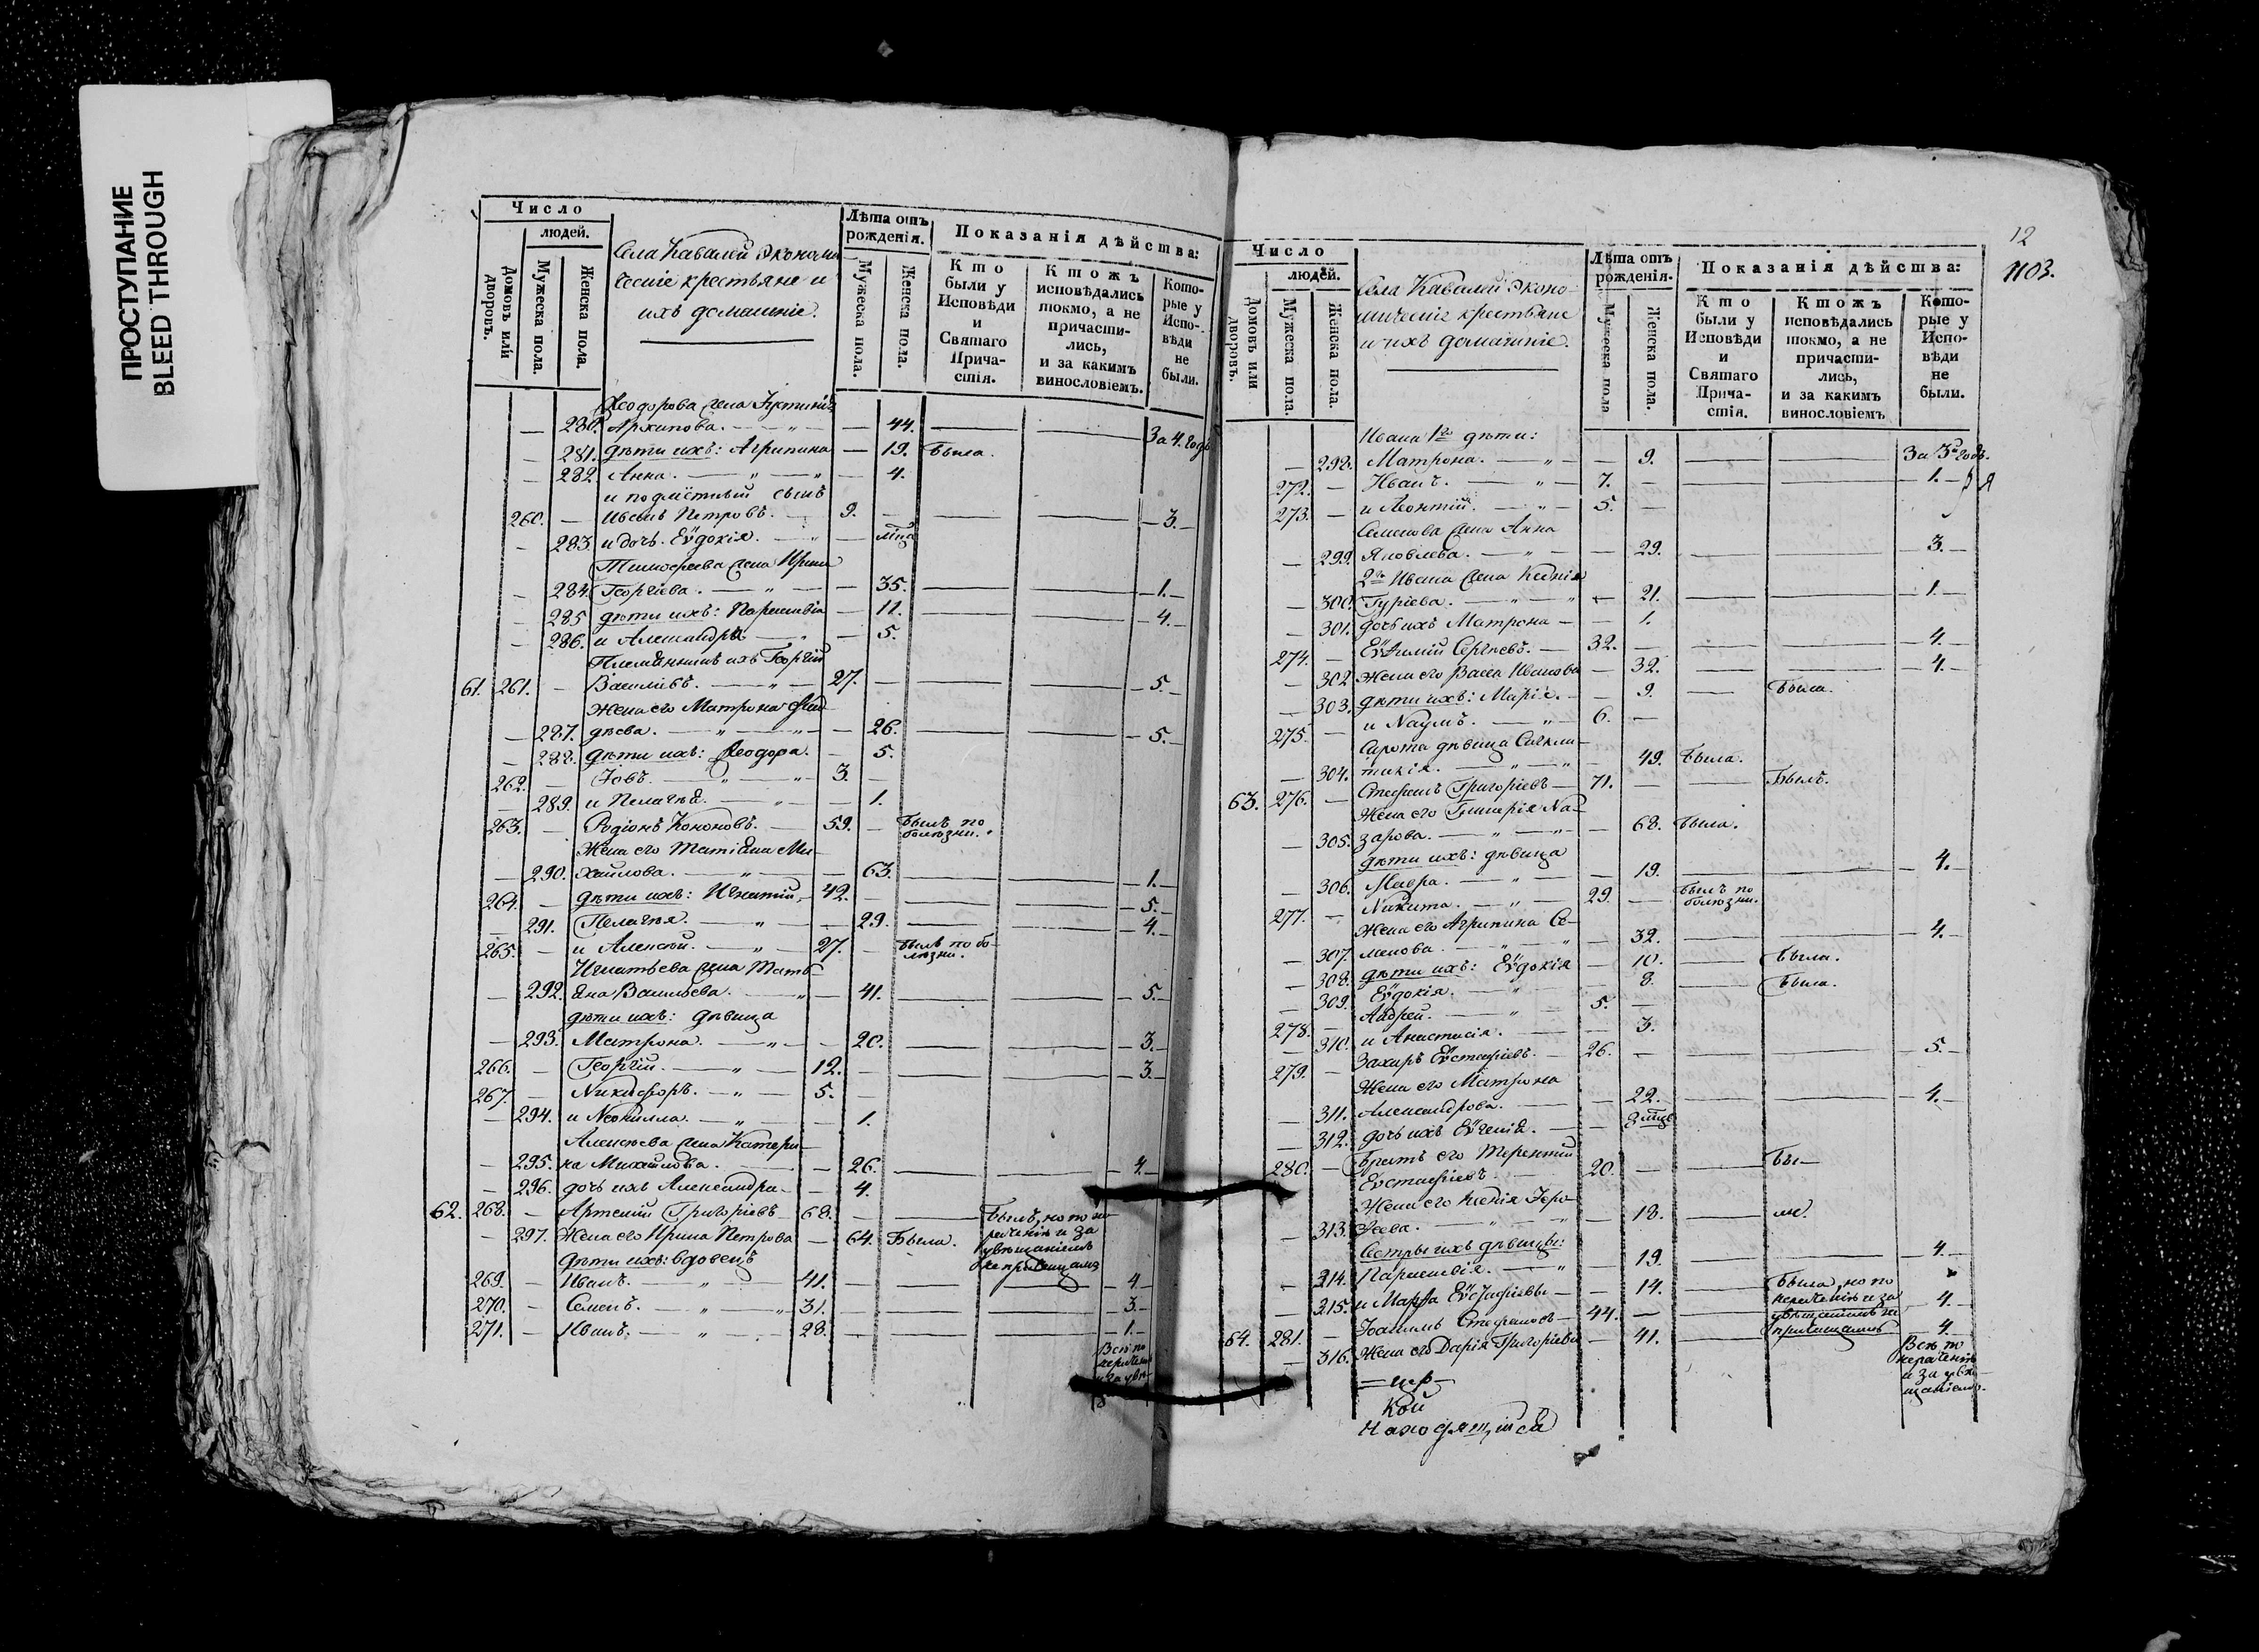 ПРОСТУПАНИЕ
BLEED THROUGH
Число
людей.
Домовъ или дворовъ.
Мужеска пола.
Женска пола.
Села Кавалей Экономи
ческіе крестьяне и
ихъ домашніе.
Лѣта отъ рожденія.
Мужеска пола.
Женска пола.
Показанія дѣйства:
Кто были у Исповѣди и Святаго Причастія.
Ктожъ исповѣдались токмо, а не причастились, и за какимъ винословіемъ.
Которые у Исповѣди не были.
Ѳеодорова жена Іустинія
280. Архипова. 44. За 4. годъ
281. дѣти ихъ: Агрипина 19. Была.
282 Анна. 4.
260. Петровъ. 9. 3.
283 и дочь Еѵдокія.
Тимофеева жена Ирина
284. Георгіева. 35. 1.
285 дѣти ихъ: Параскевіа 11. 4.
286. и Александра 5.
Племянникъ ихъ Георгій
61. 261. Васильевъ. 27. 5.
Жена его Матрона
287. дѣева. 26. 5.
288. дѣти ихъ: Ѳеодора. 5.
262. Іовъ. 3.
289. и Пелагѣа. 1.
263. Родіонъ Кононовъ. 59. Былъ по болѣзни.
Жена его Татіана Ми-
290. хайлова. 63. 1.
264. дѣти ихъ: Игнатій 42. 5.
291. Пелагѣя. 29. 4.
265. и Алексѣй. 27. былъ по болѣзни.
Игнатьева жена Тать-
292. яна Васильева. 41. 5.
дѣти ихъ: дѣвица
293. Матрона. 20. 3.
266. Георгій. 12. 3.
267. Никифоръ. 5.
294. и Неонилла. 1.
Алексѣева жена Катери-
295. на Михайлова. 26. 4.
296. дочь ихъ Александра 4.
62. 268. Артемій Григорьевъ 68. Былъ, но по нераченію и за увѣщаніемъ не причащался
297. Жена его Ирина Петрова 64. Была.
Дѣти ихъ: вдовецъ
269. Иванъ. 41. 4
270. Семенъ. 31. 3.
271. Иванъ. 28. 1.
Всѣ по нераченію и за увѣ-
12
1103.
Число
людей.
Домовъ или дворовъ.
Мужеска пола.
Женска пола.
Села Кавалей Эконо-
мическіе крестьяне
и ихъ домашніе.
Лѣта отъ рожденія.
Мужеска пола
Женска пола.
Показанія дѣйства:
Кто были у Исповѣди и Святаго Причастія.
Ктожъ исповѣдались токмо, а не причастились, и за какимъ винословіемъ
Которые у Исповѣди не были.
Ивана 1го дѣти:
298. Матрона. 9. За 3й годъ.
272. Иванъ. 7. 1.
273. и Леонтій. 5.
Семенова жена Анна
299. Яковлева. 29. 3.
2го Ивана жена Ксенія
300. Гуріева. 21. 1.
301. дочь ихъ Матрона 1.
274. Еѵѳимій Сергѣевъ. 32. 4.
302 Жена его Васса Иванова 32. 4.
303. дѣти ихъ: Маріа. 9. Была.
275. и Наумъ. 6.
Сирота дѣвица Сигкли-
304. тикія. 49. Была.
63. 276. Стефанъ Григорьевъ 71. Былъ.
Жена его Гликерія На-
305. зарова. 68. Была.
дѣти ихъ: дѣвица
306. Мавра. 19. 4.
277. Никита. 29. Былъ по болѣзни.
Жена его Агрипина Се-
307. менова. 32. 4.
308. дѣти ихъ: Еѵдокія 10. Была.
309. Еѵдокія. 8. Была.
278. Андрей. 5.
310. и Анастасія. 3.
279. Захаръ Еѵстафіевъ. 26. 5.
Жена его Матрона
311. Александрова. 22. 4.
312. дочь ихъ Еѵгенія.
280. Братъ его Терентій 20. Бы-
Еѵстафіевъ.
Жена его Ксенія Іеро-
313. ѳеева. 18. ли.
Сестры ихъ дѣвицы:
314. Параскевіа. 19. 4.
315. и Марѳа Еѵстафіевы 14. Была, но по нераченію и за увѣщаніемъ не причащалась 4.
64. 281. Іоакимъ Стефановъ 44. 4.
316. Жена его Дарія Григорьева 41.
Всѣ по нераченію и за увѣщаніемъ.
кой
находящійся